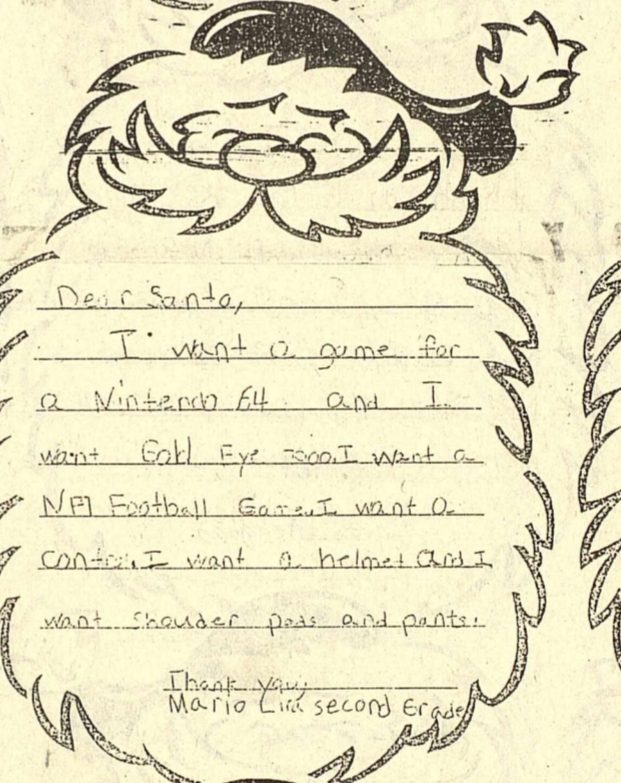 Dear Santa,
I want a game for
a Nintendo 64 and I
want Gold Eye I want a
NFl Football Game. I want a
I want a helmet and I
want Shouder pads and pants.
Thank you,
Mario Lira second Grade